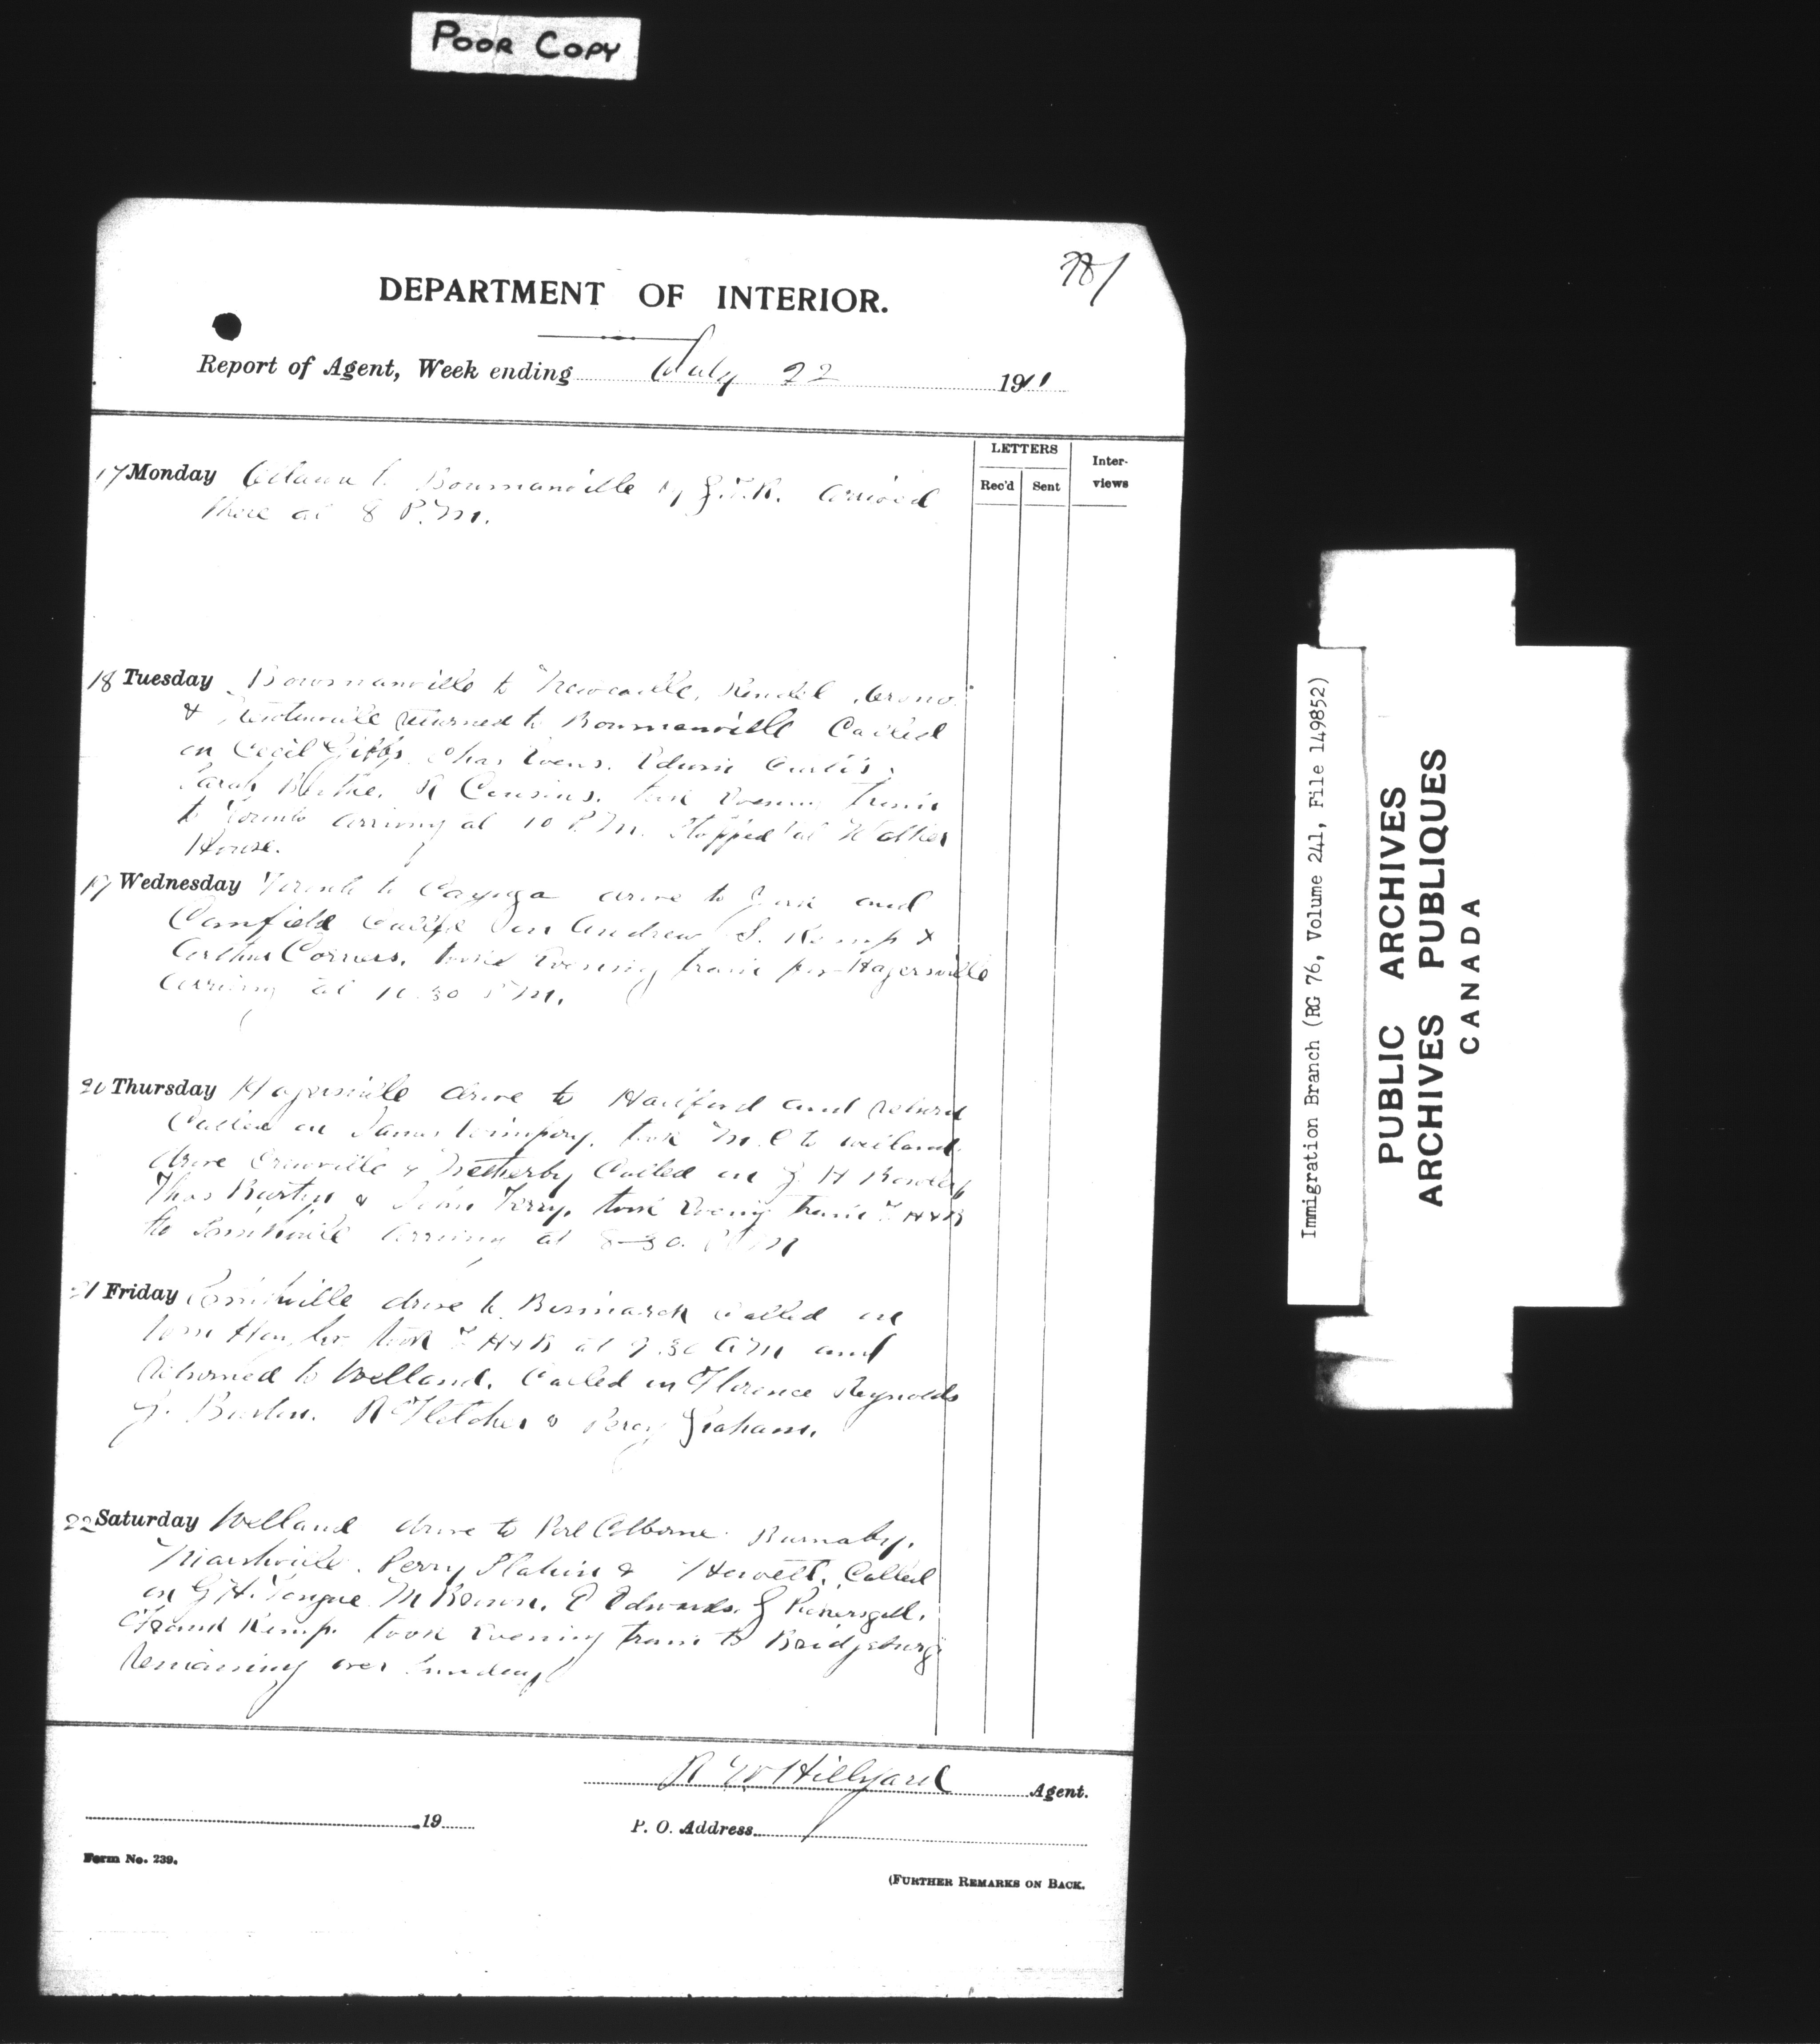 POOR COPY
DEPARTMENT OF INTERIOR.
Report of Agent, Week ending July 22 1911
LETTERS
Rec'd Sent
Inter-views
17 Monday Ottawa to Bowmanville by G.T.R. arrived
there at 8 P.M.
18 Tuesday Bowmanville to Newcastle, Kendal, Orono
& Newtonville returned to Bowmanville Called
on Cecil Gibbs, Chas Owens, Edwin Curtis,
Sarah R Cousins. took Evening train
to Toronto arriving at 10 P.M. Stopped at Walker
House.
19 Wednesday Toronto to Cayuga drive to York and
Canfield Called on Andrew S. Kemp &
Arthur Corners. took Evening train for Hagersville
arriving at 10.30 P.M.
20 Thursday Hagersville drive to Hartford and return
Called on James took M.C to Welland
drive & Netherby Called on J H
Thos & Terry, took Evening train T H & B
to Smithville arriving at 8-30 P.M
21 Friday Smithville drive to Bismarck Called on
took T H & B at 9.30 A.M and
returned to Welland. Called on Florence Reynolds
J. R Fletcher & Percy Graham.
22 Saturday Welland drive to Port Colborne Burnaby,
Marshville, Perry Station & Called
on G H. Tongue M Brown, E Edwards, G Pickersgill,
Frank Kemp. took Evening train to Bridgeburg
remaining over Sunday
R W Hillyard Agent.
19
P. O. Address
Form No. 239.
(FURTHER REMARKS ON BACK.
Immigration Branch (RG 76, Volume 241, File 149852)
PUBLIC ARCHIVES
ARCHIVES PUBLIQUES
CANADA